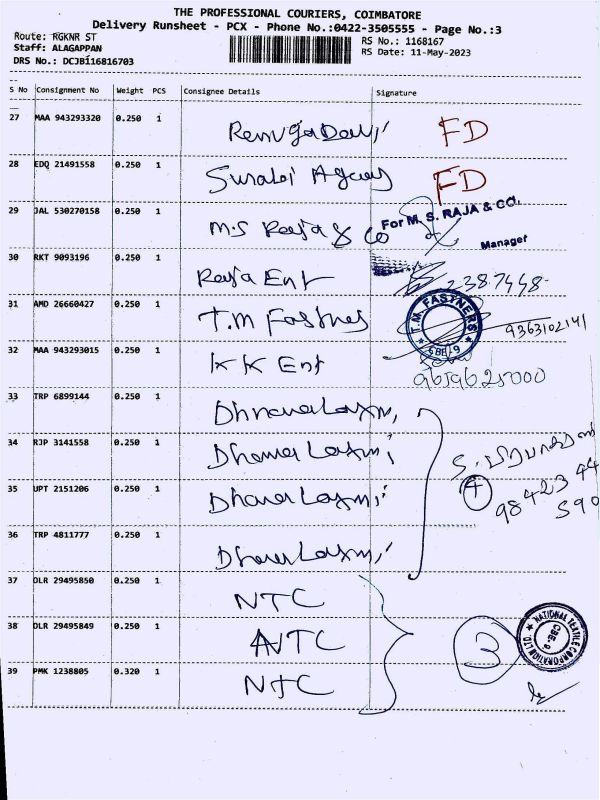 THE PROFESSIONAL COURIERS, COIMBATORE
Delivery Runsheet - PCX - Phone No.:0422-3505555 - Page No.:3
Route: RGKNR ST
RS No.: 1168167
Staff: ALAGAPPAN
RS Date: 11-May-2023
DRS No.: DCJBI16816703
S No Consignment No Weight PCS Consignee Details Signature
27 MAA 943293320 0.250 1 Renuga Devi FD
28 EDQ 21491558 0.250 1 Surabi Agency FD
29 JAL 530270158 0.250 1 M.S Raja & Co For M. S. RAJA & CO.
Manager
30 RKT 9093196 0.250 1 Raja Ent 2387448
31 AMD 26660427 0.250 1 T.M Fastnes T.M. FASTNERS 9363102141
32 MAA 943293015 0.250 1 KK Ent
9659625000
33 TRP 6899144 0.250 1 Dhanalaxmi
34 RJP 3141558 0.250 1 Dhanalaxmi
35 UPT 2151206 0.250 1 Dhanalaxmi 4 98423 44
590
36 TRP 4811777 0.250 1 Dhanalaxmi
37 DLR 29495850 0.250 1 NTC
38 DLR 29495849 0.250 1 NTC 3 NATIONAL TEXTILE CORPORATION LTD. CBE-9
39 PMK 1238805 0.320 1 NTC